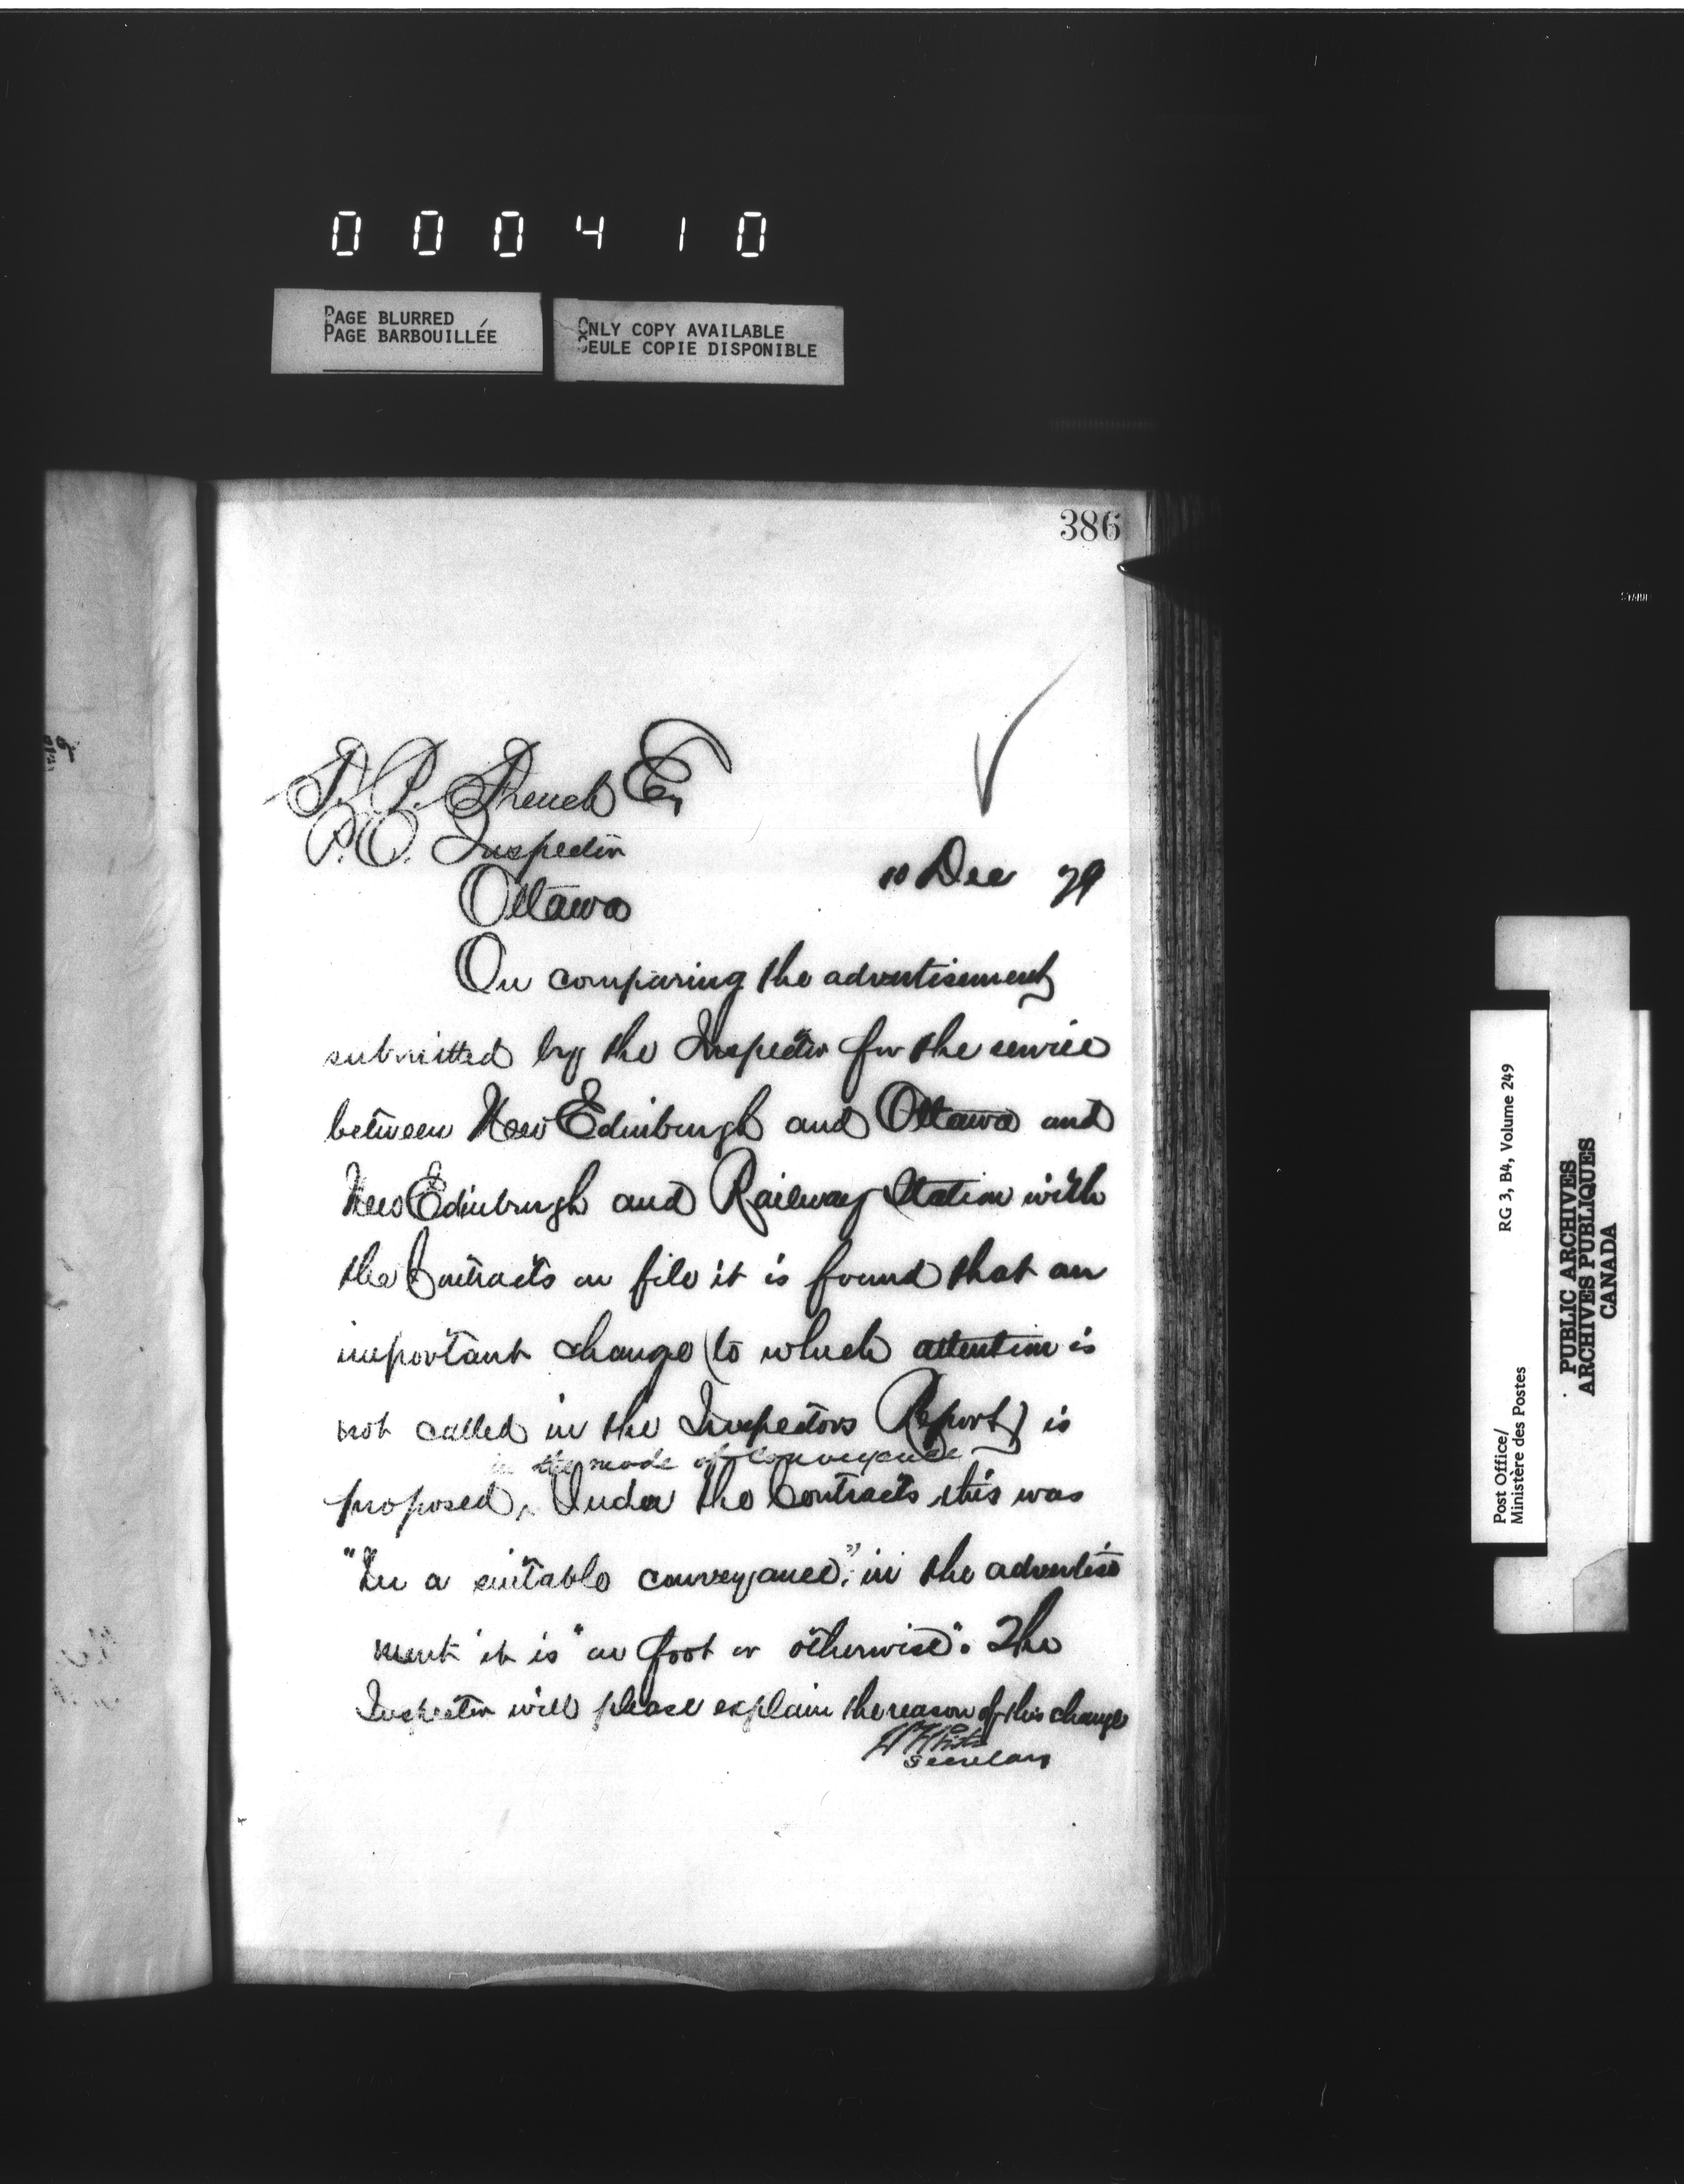 000410
PAGE BLURRED
PAGE BARBOUILLÉE
ONLY COPY AVAILABLE
SEULE COPIE DISPONIBLE
386
T. P. French Esq
P.O. Inspector
Ottawa
10 Dec 79
On comparing the advertisement
submitted by the Inspector for the service
between New Edinburgh and Ottawa and
New Edinburgh and Railway Station with
the Contracts on file it is found that an
important change (to which attention is
not called in the Inspectors Report) is
in the mode of Conveyance
proposed, Under the Contracts this was
"In a suitable conveyance", in the advertise
ment it is "on foot or otherwise". The
Inspector will please explain the reason of this change
W White
Secretary
Post Office/
Ministère des Postes
RG 3, B4, Volume 249
PUBLIC ARCHIVES
ARCHIVES PUBLIQUES
CANADA